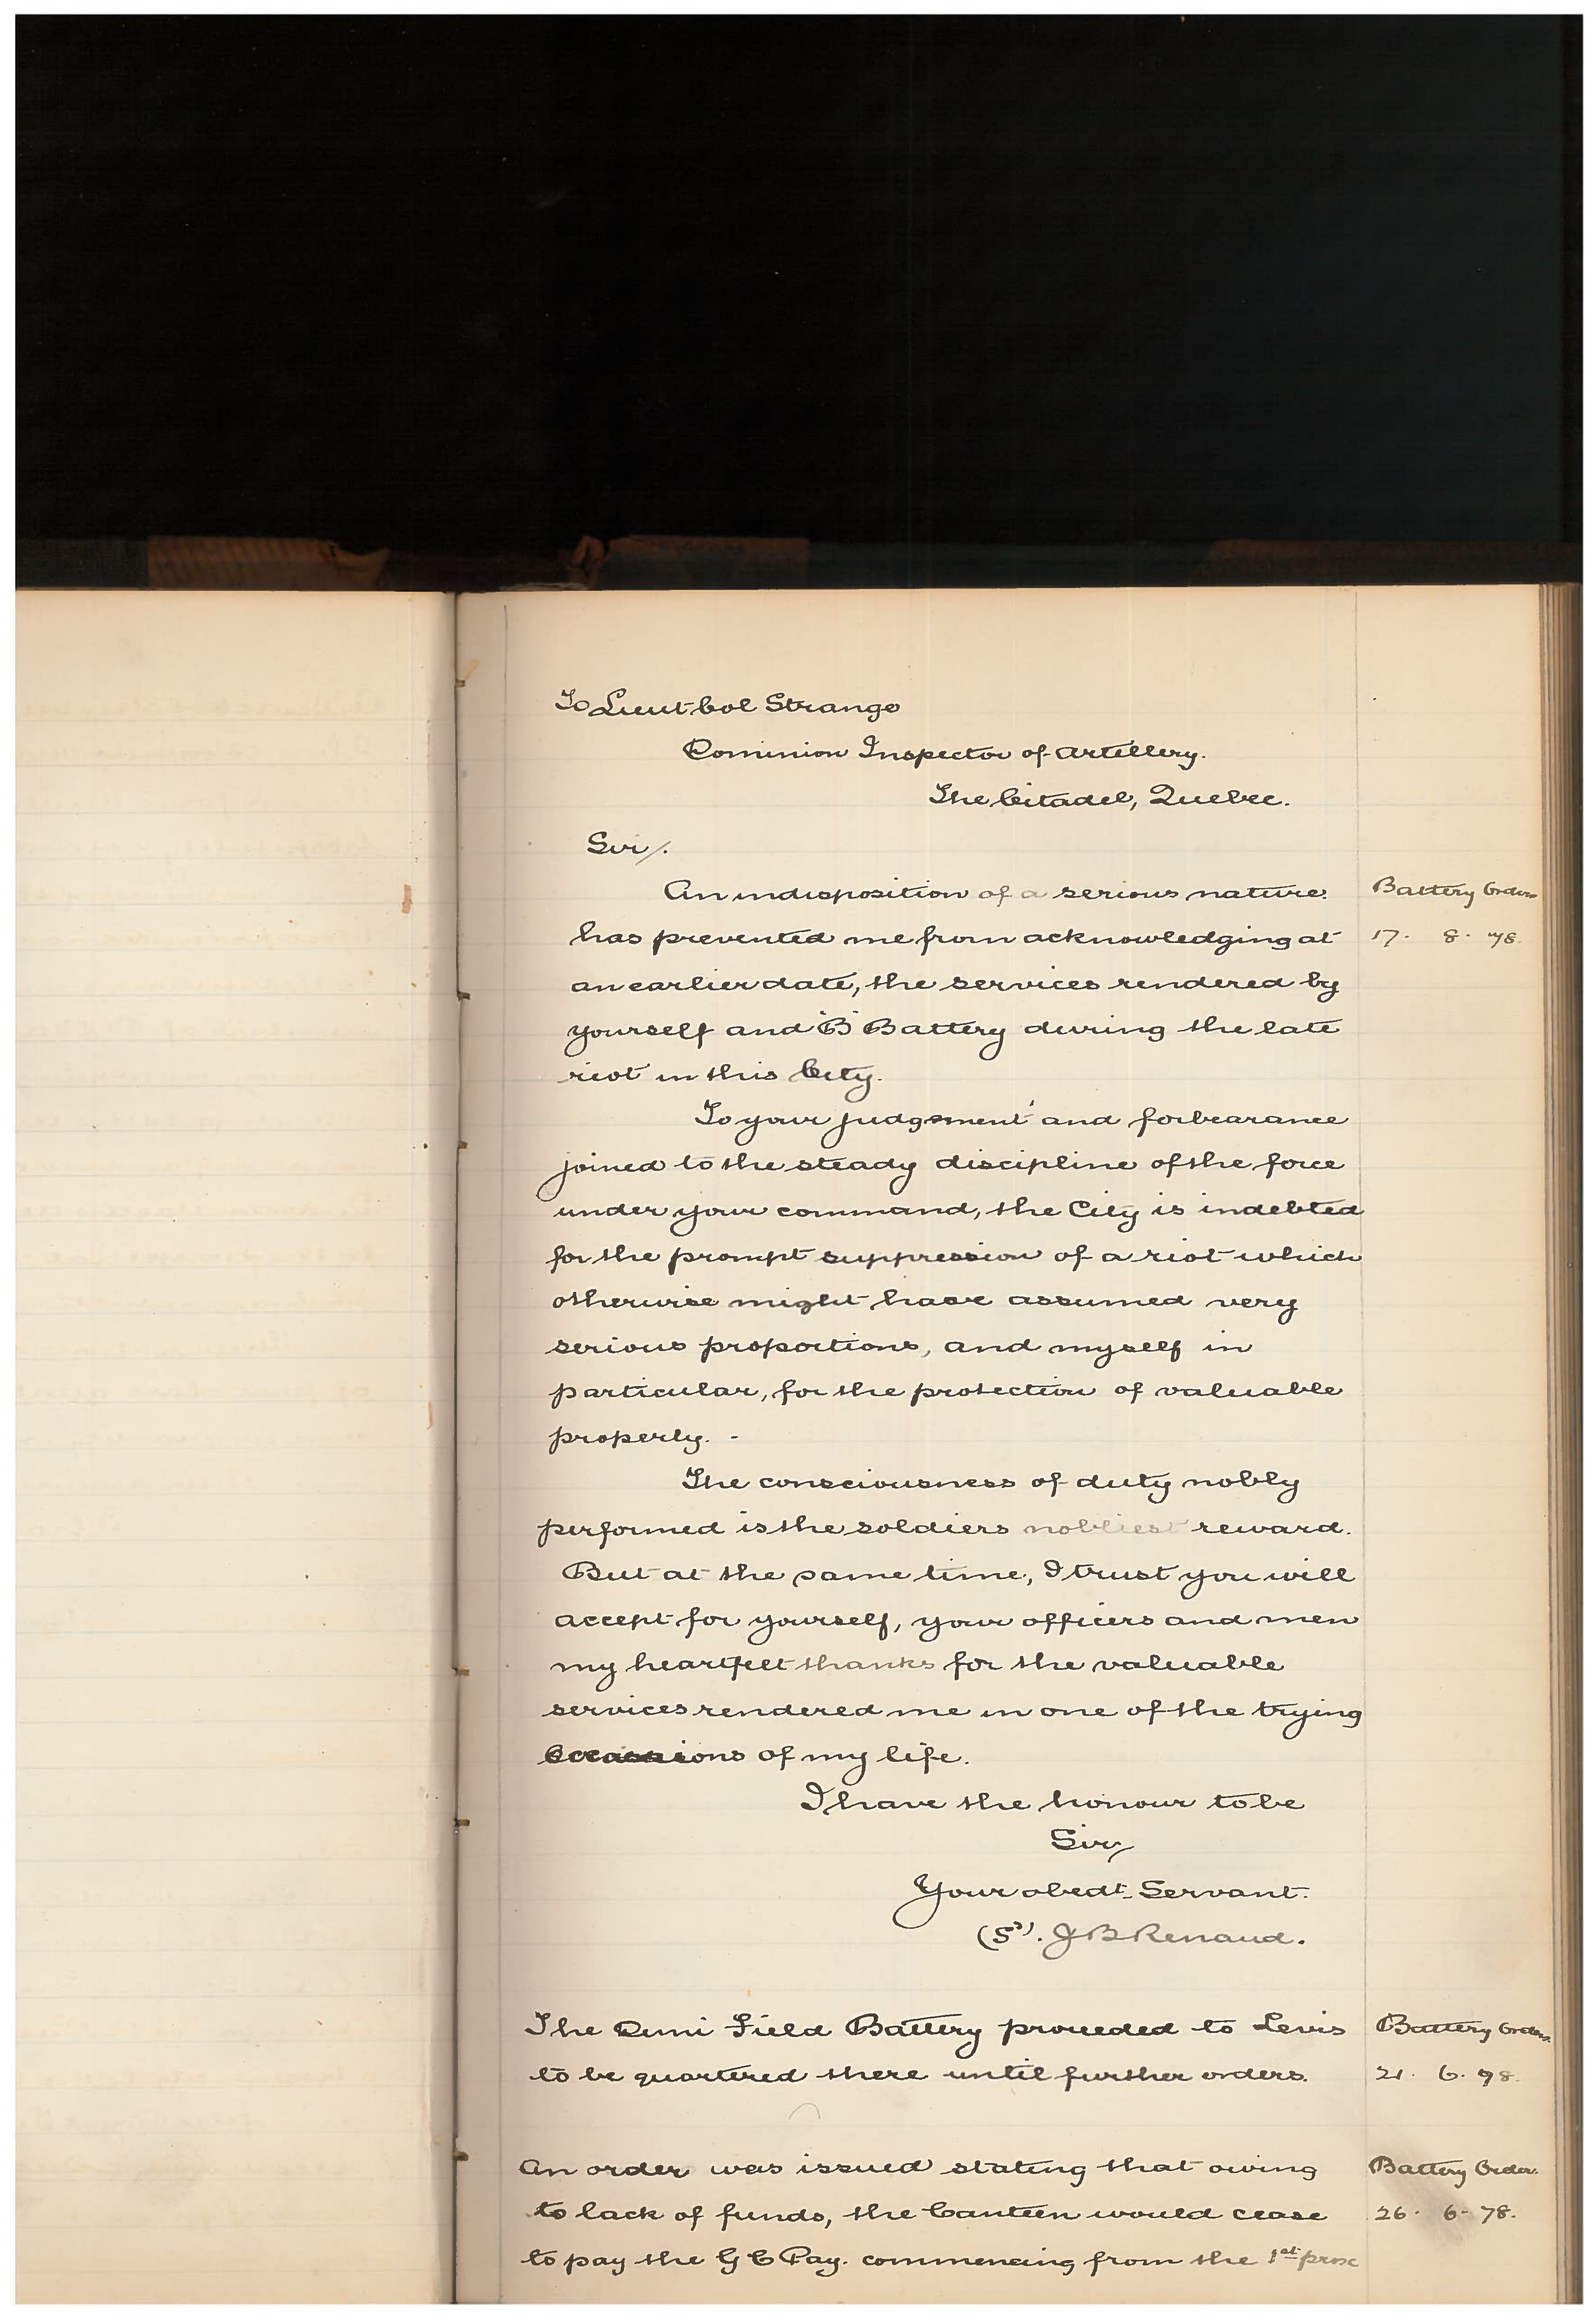 To Lieut Col Strange
Dominion Inspector of Artillery.
The Citadel, Quebec.
Sir/.
An indisposition of a serious nature. Battery Orders
has prevented me from acknowledging at 17. 8. 78.
an earlier date, the services rendered by
yourself and "B" Battery during the late
riot in this City.
To your judgement and forbearance
joined to the steady discipline of the force
under your command, the City is indebted
for the prompt suppression of a riot which
otherwise might have assumed very
serious proportions, and myself in
particular, for the protection of valuable
property. -
The consciousness of duty nobly
performed is the soldiers nobliest reward.
But at the same time, I trust you will
accept for yourself, your officers and men
my heartfelt thanks for the valuable
services rendered me in one of the trying
Occassions of my life.
I have the honour to be
Sir/
Your obedt. Servant.
(Sd). J B Renaud.
The Demi Field Battery proceeded to Levis Battery Orders.
to be quartered there until further orders. 21. 6. 78.
An order was issued stating that owing Battery Order.
to lack of funds, the Canteen would cease 26. 6. 78.
to pay the G C Pay. commencing from the 1st prox